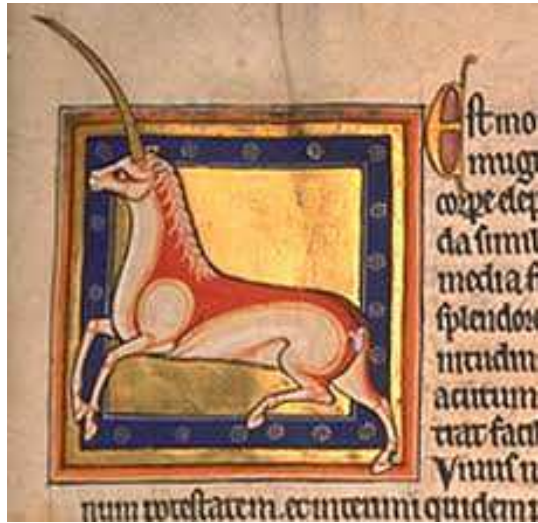 Est mo
mugi
corpe elep
da simil
media f
splendore
nitudini
acutum
tiat facil
Viuus n
num potestatem. et interimi quidem p